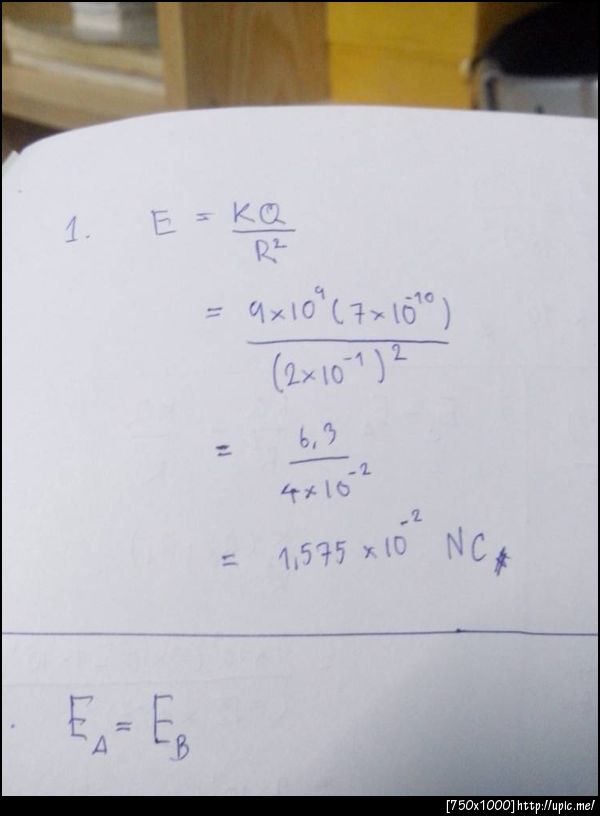 1. E = KQ
R²
= 9×10⁹(7×10⁻¹⁰)
(2×10⁻¹)²
= 6,3
4×10⁻²
= 1,575 ×10⁻² NC
. E_A = E_B
[750x1000]http://upic.me/